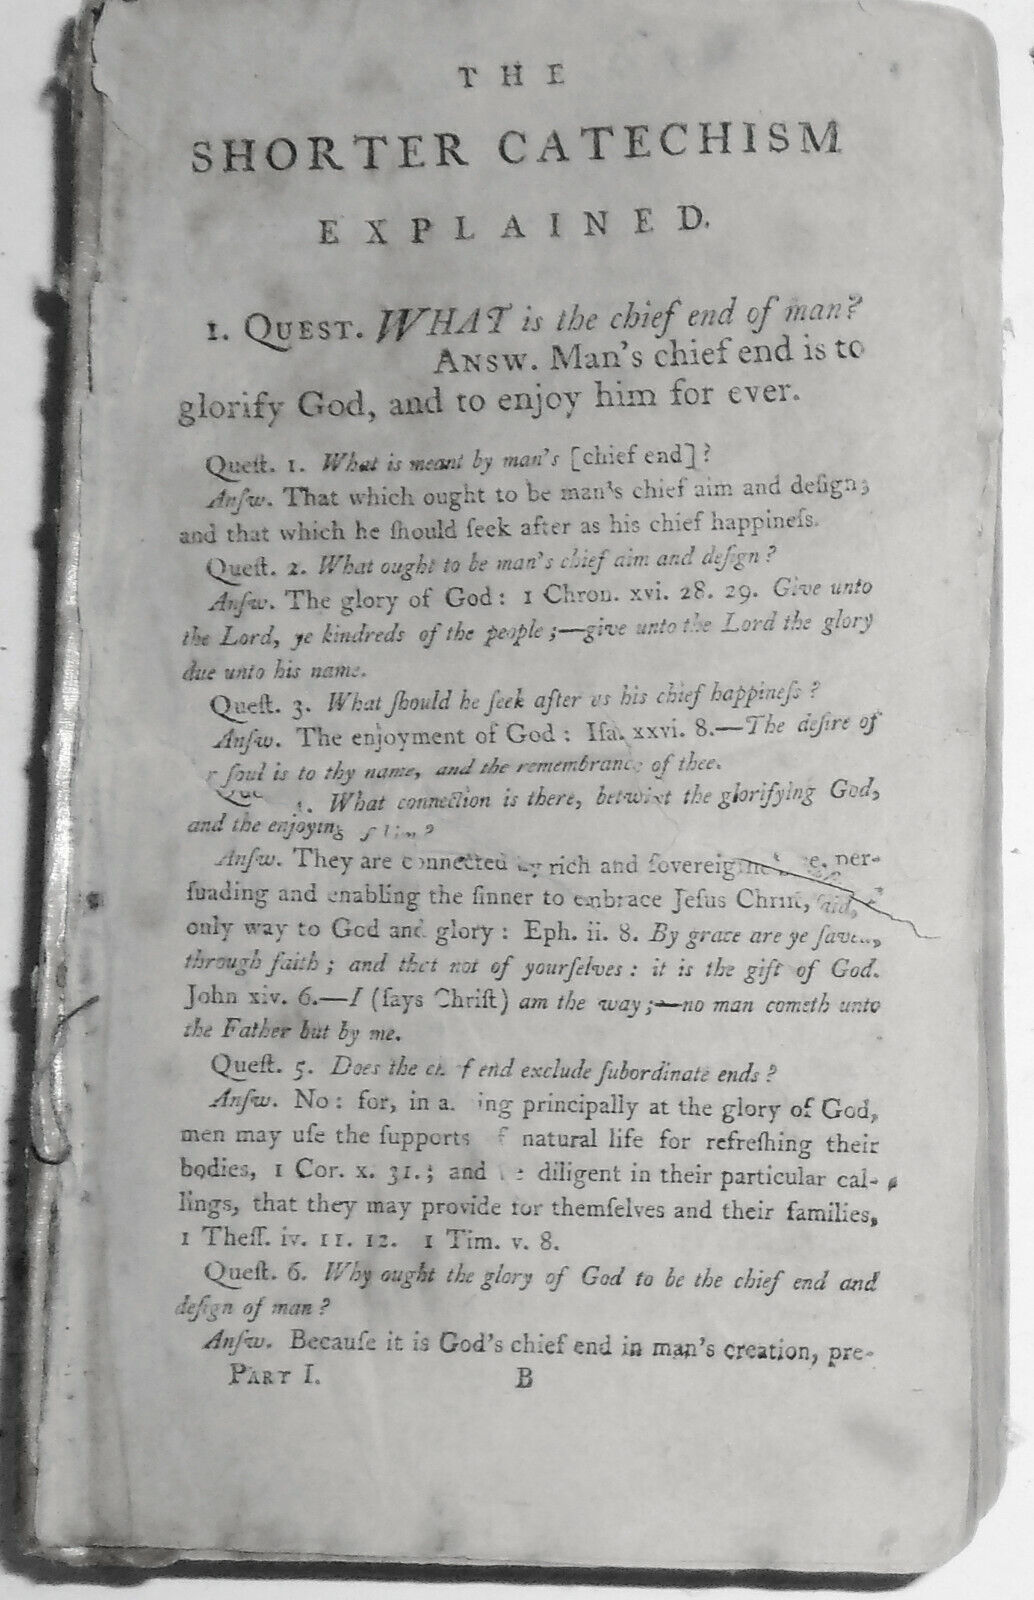 THE
SHORTER CATECHISM
EXPLAINED.
1. QUEST. WHAT is the chief end of man?
ANSW. Man's chief end is to
glorify God, and to enjoy him for ever.
Queſt. 1. What is meant by man's [chief end]?
Anſw. That which ought to be man's chief aim and deſign;
and that which he ſhould ſeek after as his chief happineſs.
Queſt. 2. What ought to be man's chief aim and deſign?
Anſw. The glory of God: 1 Chron. xvi. 28. 29. Give unto
the Lord, ye kindreds of the people;—give unto the Lord the glory
due unto his name.
Queſt. 3. What ſhould he ſeek after as his chief happineſs?
Anſw. The enjoyment of God: Iſa. xxvi. 8.—The deſire of
ſoul is to thy name, and the remembrance of thee.
What connection is there, betwixt the glorifying God,
and the enjoying
Anſw. They are connected by rich and ſovereign per-
ſuading and enabling the ſinner to embrace Jeſus Chriſt,
only way to God and glory: Eph. ii. 8. By grace are ye ſaved,
through faith; and that not of yourſelves: it is the gift of God.
John xiv. 6.—I (ſays Chriſt) am the way;—no man cometh unto
the Father but by me.
Queſt. 5. Does the end exclude ſubordinate ends?
Anſw. No: for, in principally at the glory of God,
men may uſe the ſupports of natural life for refreſhing their
bodies, 1 Cor. x. 31.; and be diligent in their particular cal-
lings, that they may provide for themſelves and their families,
1 Theſſ. iv. 11. 12. 1 Tim. v. 8.
Queſt. 6. Why ought the glory of God to be the chief end and
deſign of man?
Anſw. Becauſe it is God's chief end in man's creation, pre-
PART I. B